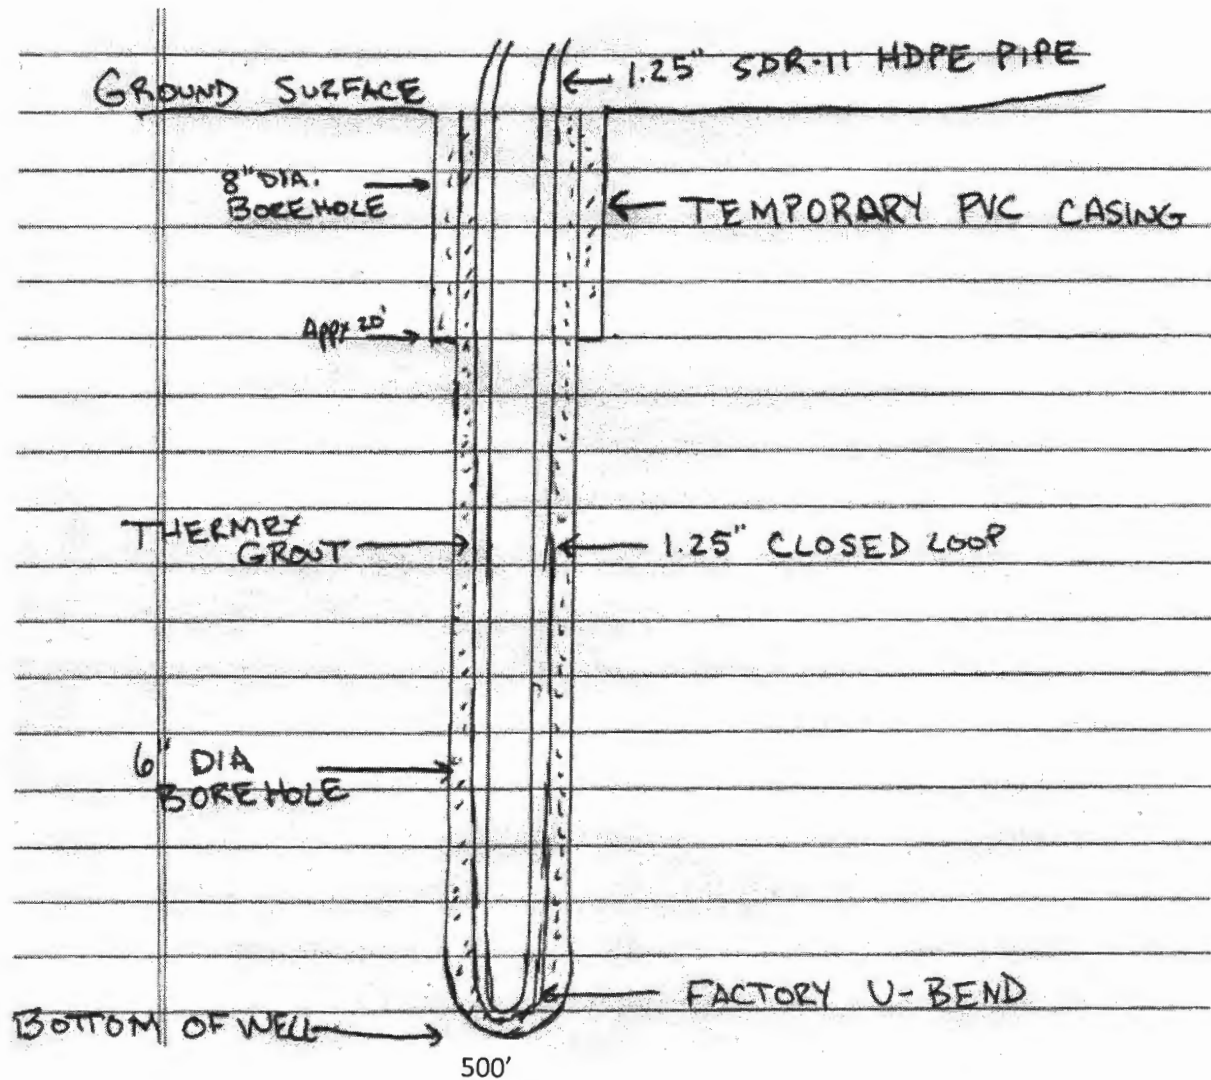 1.25" SDR-11 HDPE PIPE
GROUND SURFACE
8" DIA.
BOREHOLE
TEMPORARY PVC CASING
Appx 20'
THERMEX
GROUT
1.25" CLOSED LOOP
6" DIA
BOREHOLE
FACTORY U-BEND
BOTTOM OF WELL
500'